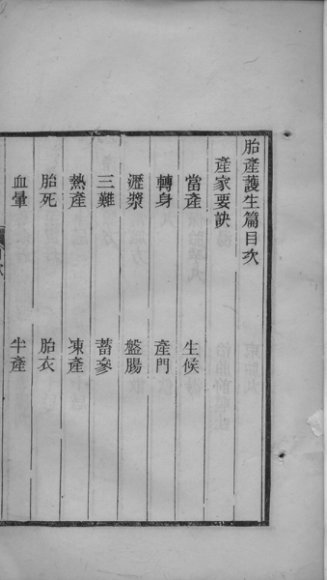 胎產護生篇目次
產家要訣
當產 生候
轉身 產門
瀝漿 盤腸
三難 蓄參
熱產 凍產
胎死 胎衣
血暈 半產